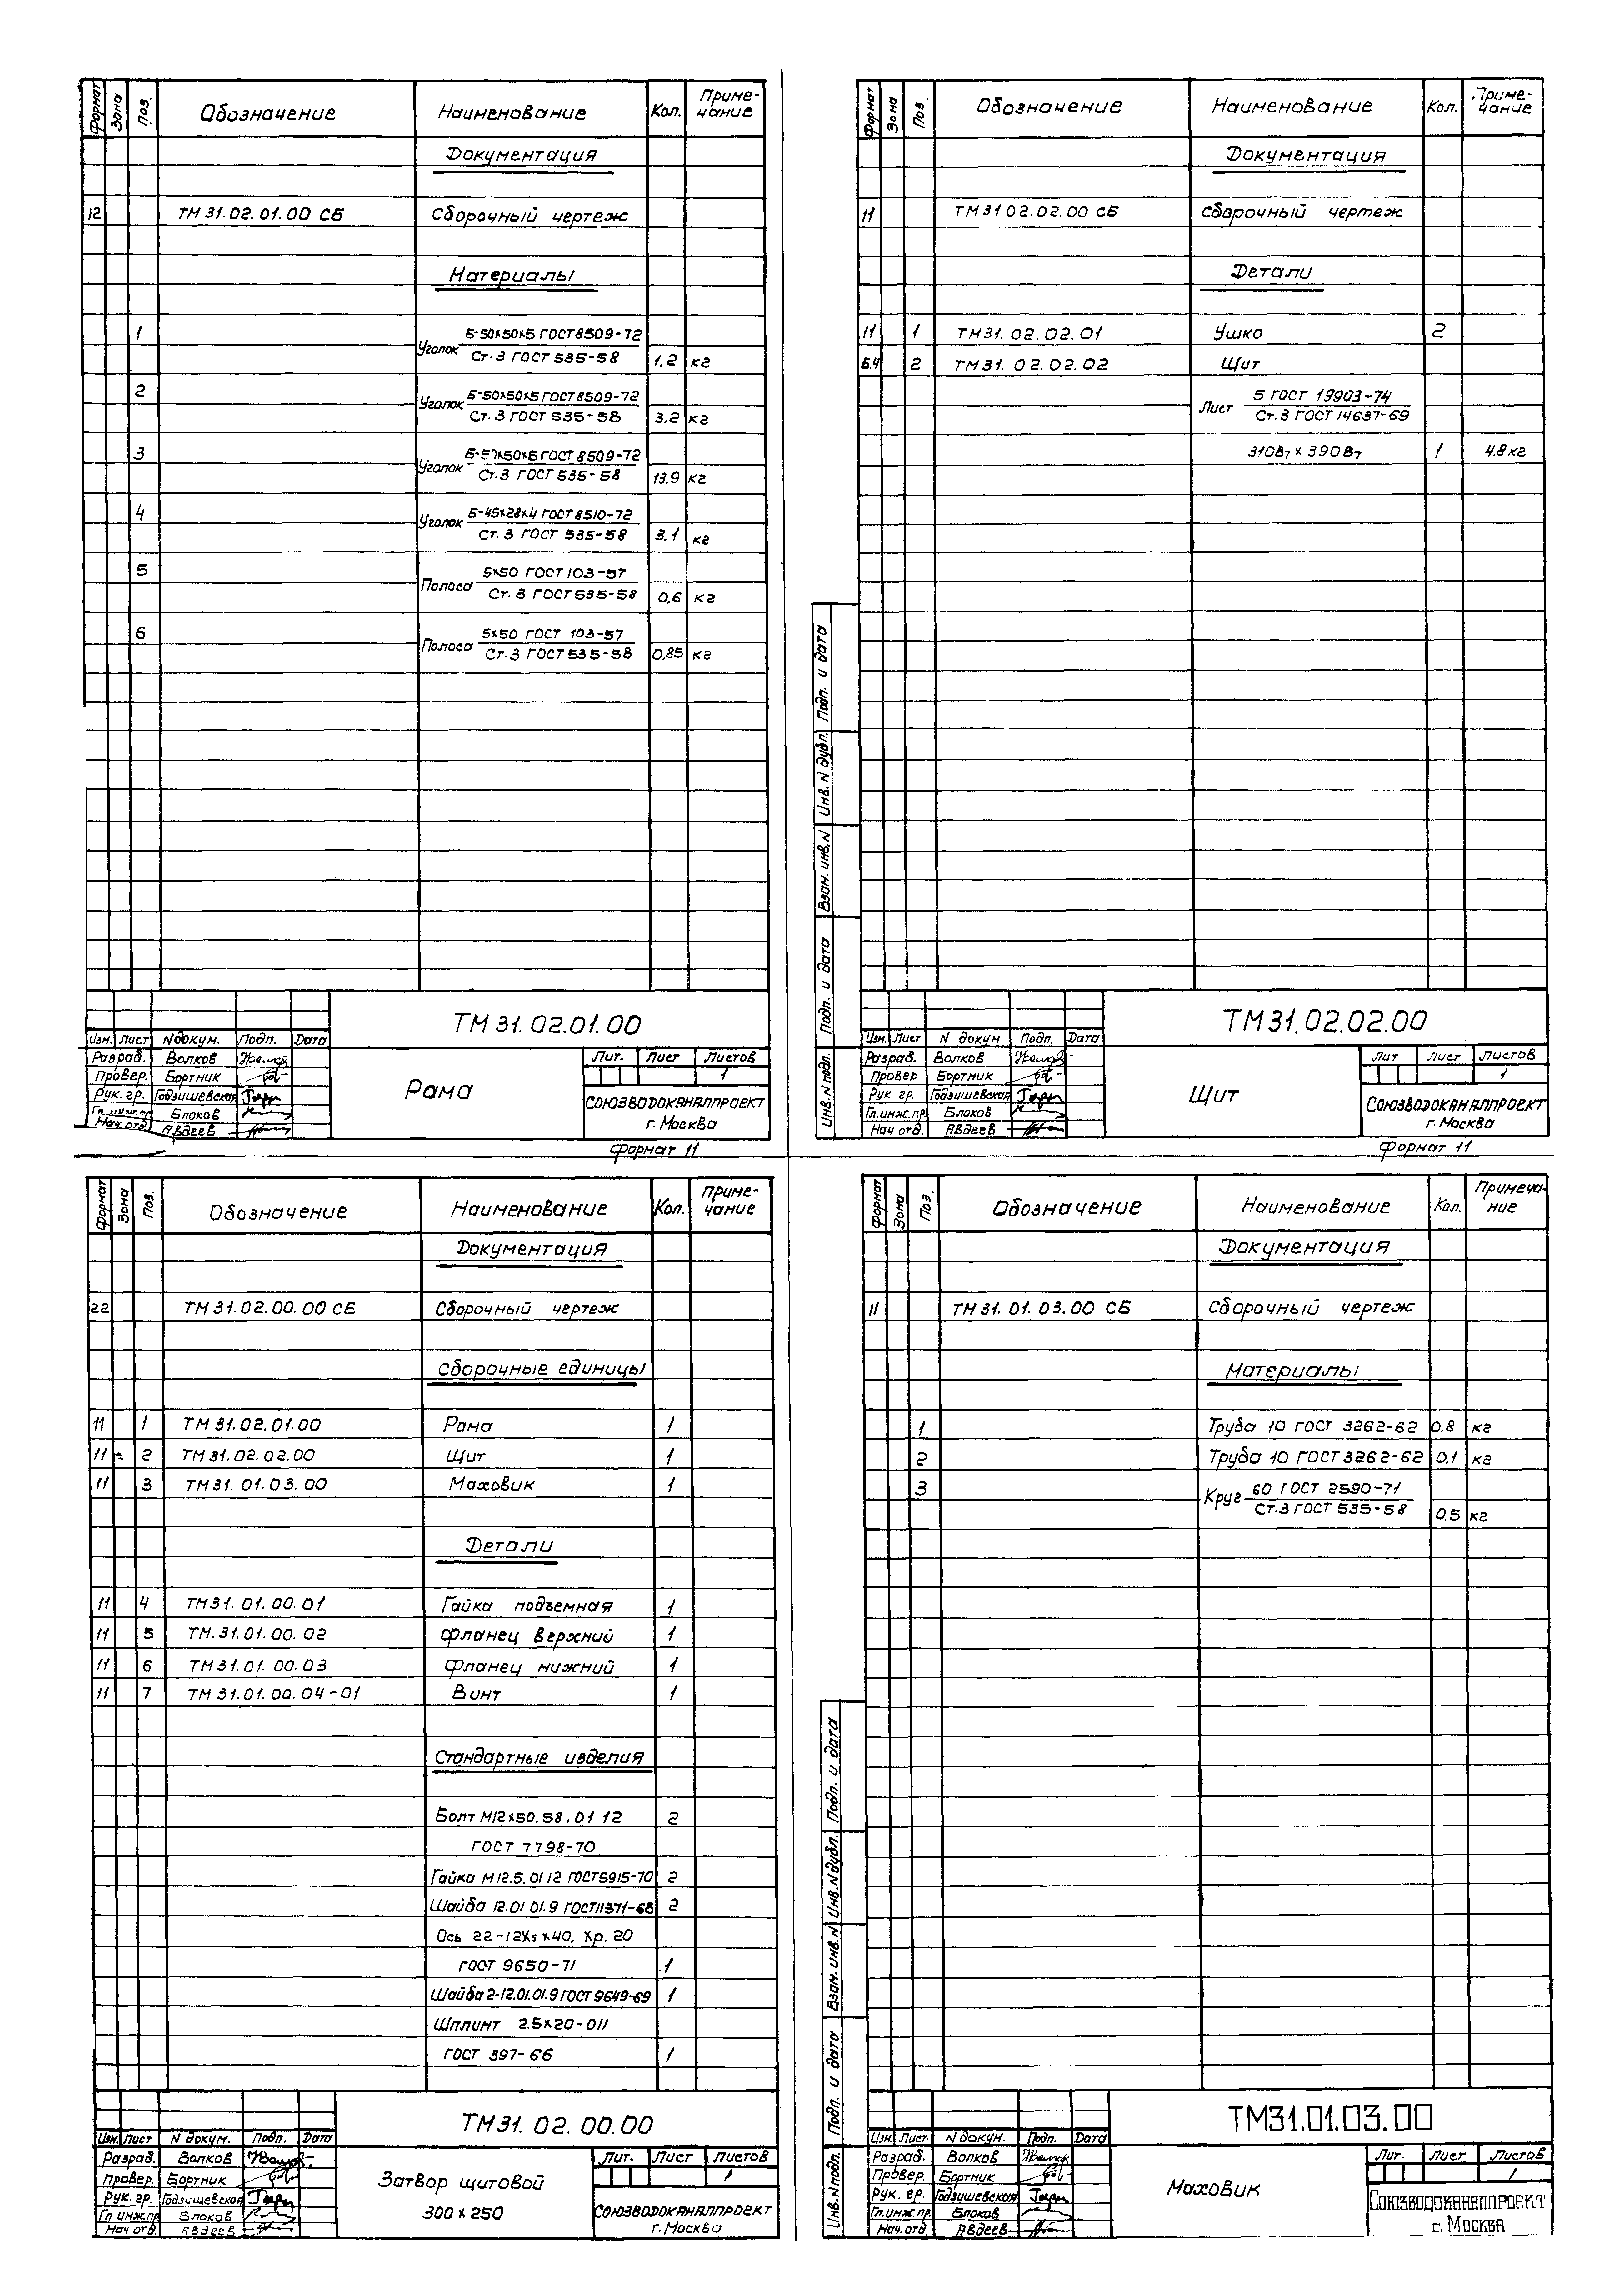 Формат Зона Поз. Обозначение Наименование Кол. Приме-
чание
Документация
12 ТМ 31.02.01.00 СБ Сборочный чертеж
Материалы
1 Уголок Б-50х50х5 ГОСТ 8509-72
Ст.3 ГОСТ 535-58 1,2 кг
2 Уголок Б-50х50х5 ГОСТ 8509-72
Ст.3 ГОСТ 535-58 3,2 кг
3 Уголок Б-50х50х5 ГОСТ 8509-72
Ст.3 ГОСТ 535-58 13.9 кг
4 Уголок Б-45х28х4 ГОСТ 8510-72
Ст.3 ГОСТ 535-58 3.1 кг
5 Полоса 5х50 ГОСТ 103-57
Ст.3 ГОСТ 535-58 0,6 кг
6 Полоса 5х50 ГОСТ 103-57
Ст.3 ГОСТ 535-58 0,85 кг
ТМ 31.02.01.00
Изм. Лист N докум. Подп. Дата
Разраб. Волков
Провер. Бортник
Рук. гр. Годзишевская
Гл. инж. пр. Блоков
Нач. отд. Авдеев
Рама
Лит. Лист Листов
1
СОЮЗВОДОКАНАЛПРОЕКТ
г. Москва
Формат 11
Формат Зона Поз. Обозначение Наименование Кол. Приме-
чание
Документация
11 ТМ 31 02.02.00 СБ Сборочный чертеж
Детали
11 1 ТМ31.02.02.01 Ушко 2
Б.Ч 2 ТМ31.02.02.02 Щит
Лист 5 ГОСТ 19903-74
Ст.3 ГОСТ 14637-69
310В7 х 390В7 1 4.8 кг
Подп. и дата
Инв. N дубл.
Взам. инв. N
Подп. и дата
Инв. N подл.
ТМ31.02.02.00
Изм. Лист N докум Подп. Дата
Разраб. Волков
Провер Бортник
Рук гр. Годзишевская
Гл. инж. пр. Блоков
Нач отд. Авдеев
Щит
Лит Лист Листов
1
СОЮЗВОДОКАНАЛПРОЕКТ
г. Москва
Формат 11
Формат Зона Поз. Обозначение Наименование Кол. Приме-
чание
Документация
22 ТМ 31.02.00.00 СБ Сборочный чертеж
Сборочные единицы
11 1 ТМ 31.02.01.00 Рама 1
11 2 ТМ 31.02.02.00 Щит 1
11 3 ТМ 31.01.03.00 Маховик 1
Детали
11 4 ТМ31.01.00.01 Гайка подъемная 1
11 5 ТМ.31.01.00.02 Фланец верхний 1
11 6 ТМ31.01.00.03 Фланец нижний 1
11 7 ТМ 31.01.00.04-01 Винт 1
Стандартные изделия
Болт М12х50.58.01 12 2
ГОСТ 7798-70
Гайка М12.5.01 12 ГОСТ5915-70 2
Шайба 12.01 01.9 ГОСТ11371-68 2
Ось 22-12Х5 х40. Хр.20
ГОСТ 9650-71 1
Шайба 2-12.01.01.9 ГОСТ 9649-69 1
Шплинт 2.5х20-011
ГОСТ 397-66 1
ТМ31.02.00.00
Изм. Лист N докум. Подп. Дата
Разраб. Волков
Провер. Бортник
Рук. гр. Годзишевская
Гл инж. пр Блоков
Нач отд. Авдеев
Затвор щитовой
300 х 250
Лит. Лист Листов
1
СОЮЗВОДОКАНАЛПРОЕКТ
г. Москва
Формат Зона Поз. Обозначение Наименование Кол. Примеча-
ние
Документация
11 ТМ 31.01.03.00 СБ Сборочный чертеж
Материалы
1 Труба 10 ГОСТ 3262-62 0,8 кг
2 Труба 10 ГОСТ 3262-62 0,1 кг
3 Круг 60 ГОСТ 2590-71
Ст.3 ГОСТ 535-58 0,5 кг
Подп. и дата
Инв. N дубл.
Взам. инв. N
Подп. и дата
Инв. N подл.
ТМ31.01.03.00
Изм. Лист. N докум. Подп. Дата
Разраб. Волков
Провер. Бортник
Рук. гр. Годзишевская
Гл. инж. пр. Блоков
Нач. отд. Авдеев
Маховик
Лит. Лист Листов
1
СОЮЗВОДОКАНАЛПРОЕКТ
г. Москва